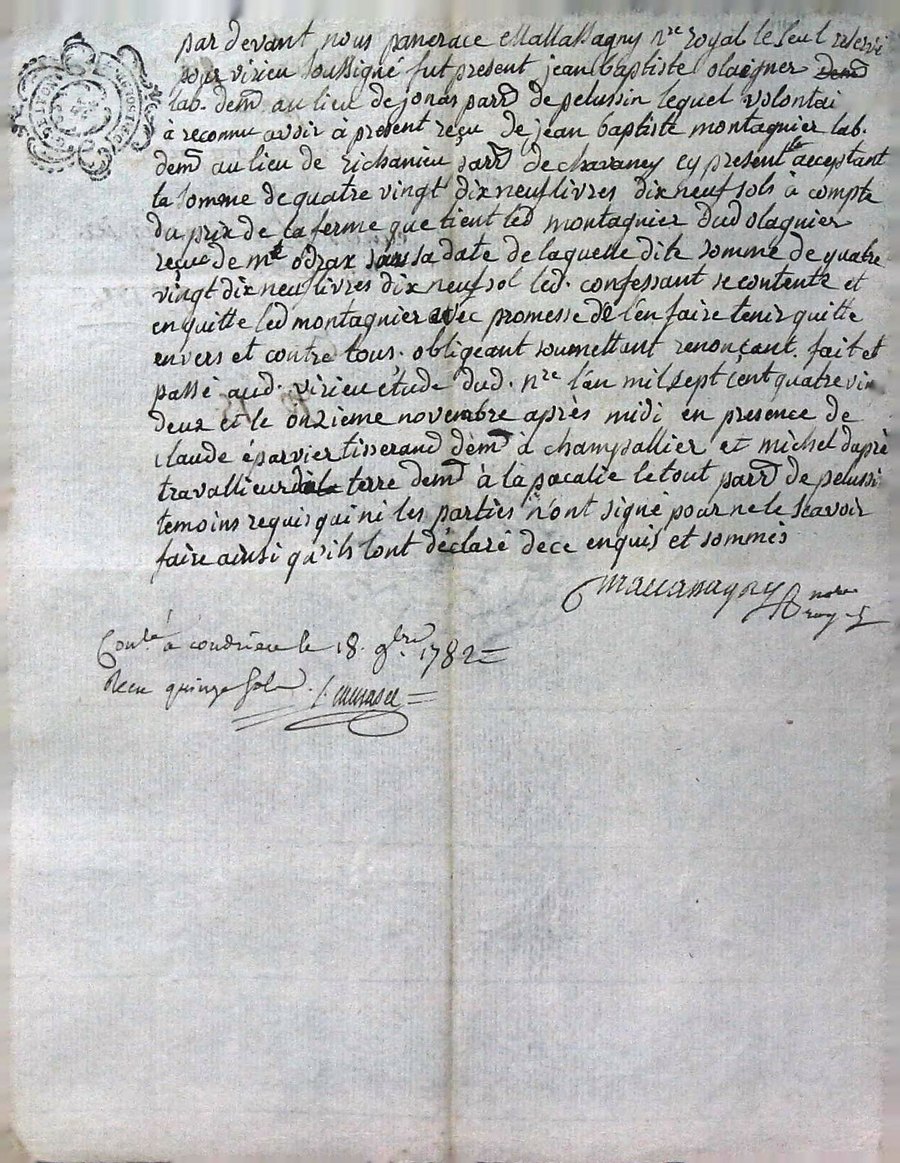 par devant nous pancrace Mallassagny nre royal le seul reservé
pour virieu soussigné fut present jean baptiste olagner demt
lab. demt au lieu de jonas parr de pelussin lequel volontai
à reconnu avoir à present reçu de jean baptiste montagnier lab.
demt au lieu de Richanieu parr de chavaney cy present acceptant
la somme de quatre vingt dix neuf livres dix neuf sols à compte
du prix de la ferme que tient led montagnier dud olagnier
reçue de mt odrax sous sa date de laquelle dite somme de quatre
vingt dix neuf livres dix neuf sol led. confessant se contente et
en quitte led montagnier avec promesse de l'en faire tenir quitte
envers et contre tous. obligeant soumettant renonçant. fait et
passé aud. virieu étude dud. nre l'an mil sept cent quatre vin
deux et le onzieme novembre après midi en presence de
claude éparvier tisserand demt à champallier et michel dapré
travallieur de la terre demt à la pacalie le tout parr de pelussi
temoins requis qui ni les parties n'ont signé pour ne le scavoir
faire ainsi qu'ils l'ont déclaré de ce enquis et sommés
Mallassagny nore
roy.
Conlé à condrieu le 18. 9bre 1782
Recu quinze sols.